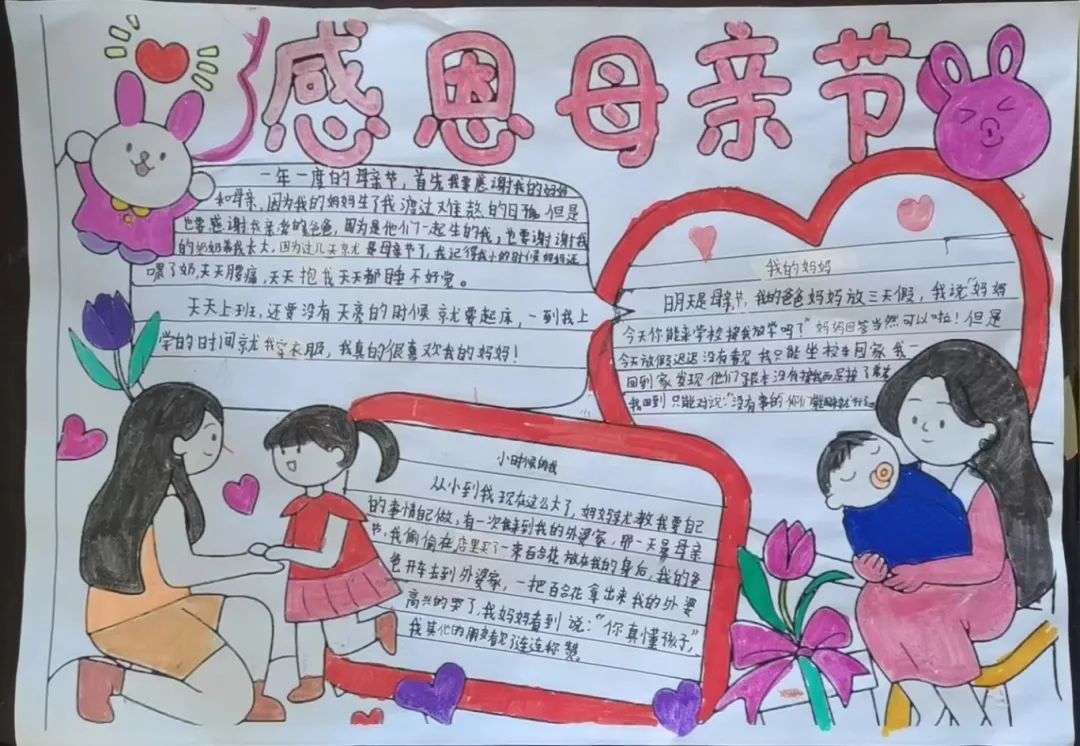 感恩母亲节
一年一度的母亲节，首先我要感谢我的妈妈
和母亲，因为我的妈妈生了我渡过难熬的日 但是
也要感谢我亲爱的爸爸，因为是他们一起生的我，也要谢谢我
的奶奶 我长大，因为这几天就是母亲节了，我记得我小的时候妈妈还
喂了奶，天天腰痛，天天抱我天天都睡不好觉。
天天上班，还要没有天亮的时候就要起床，一到我上
学的时间就我穿衣服，我真的很喜欢我的妈妈！
我的妈妈
明天是母亲节，我的爸爸妈妈放三天假，我说“妈妈
今天你能来学校接我放学吗？”妈妈回答当然可以啦！但是
今天放假迟迟没有看见我只能坐校车回家我一
回到家发现他们根本没有接我而是接了
我回到只能对说：“没有事的你们
小时候的我
从小到我现在这么大了，妈妈就教我要自己
的事情自己做，有一次我来到我的外婆家，那一天是母亲
节，我偷偷在店里买了一束百合花放在我的身后，我的爸
爸开车去到外婆家，一把百合花拿出来我的外婆
高兴的哭了，我妈妈看到说：“你真懂孩子”，
我其他的朋友看见了连连称赞。